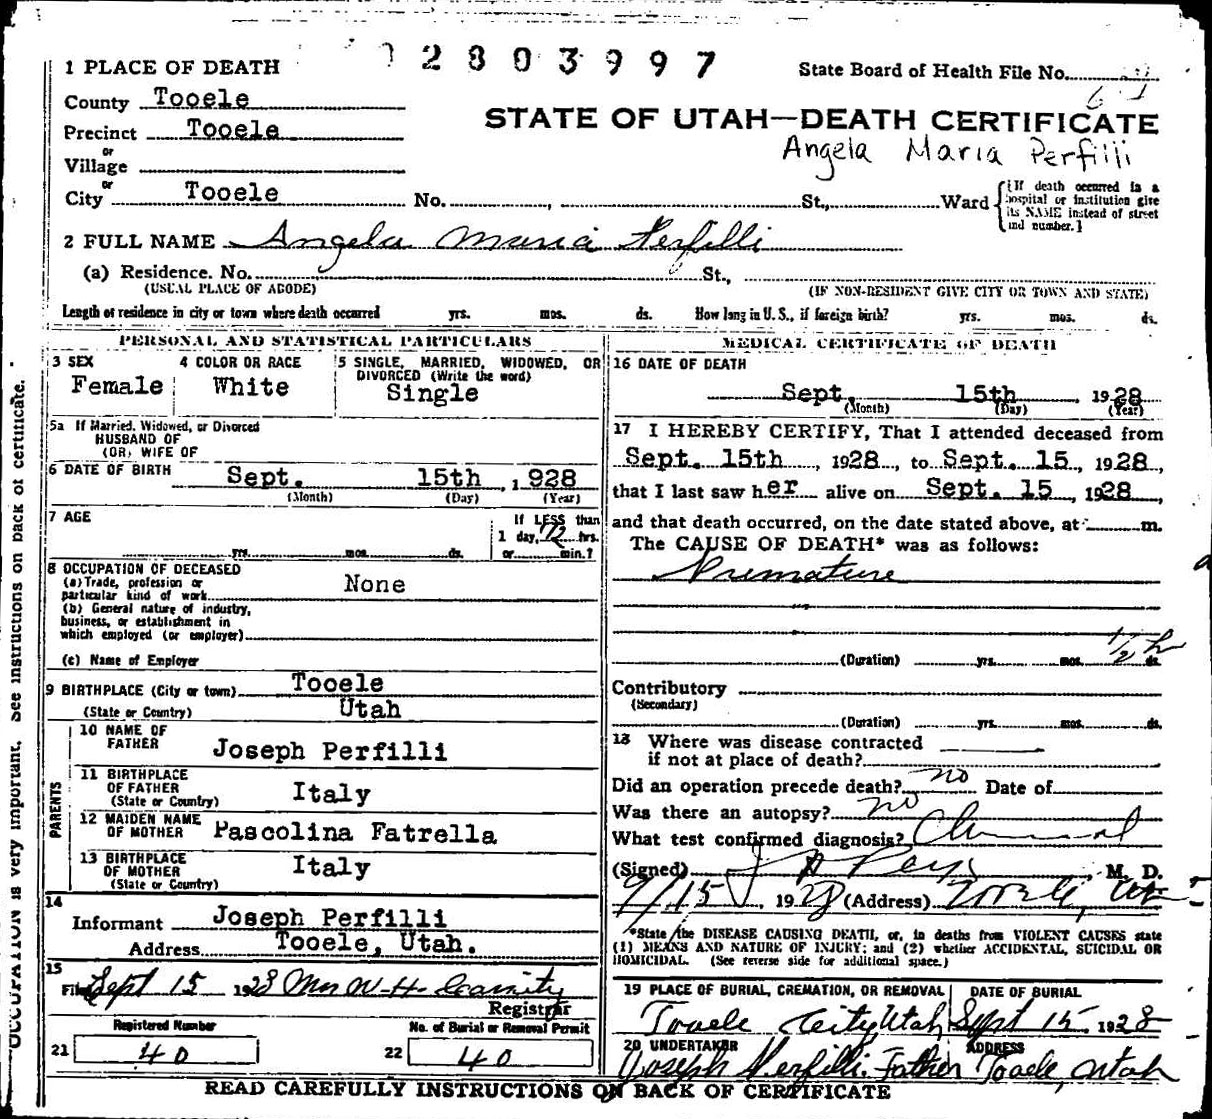 2803997
1 PLACE OF DEATH
State Board of Health File No.
County Tooele
STATE OF UTAH—DEATH CERTIFICATE
Precinct Tooele
Angela Maria Perfilli
or
Village
or
City Tooele No. , St., Ward {[If death occurred in a hospital or institution give its NAME instead of street and number.]
2 FULL NAME Angela Maria Perfilli
(a) Residence. No. St.,
(USUAL PLACE OF ABODE) (IF NON-RESIDENT GIVE CITY OR TOWN AND STATE)
Length of residence in city or town where death occurred yrs. mos. ds. How long in U. S., if foreign birth? yrs. mos. ds.
PERSONAL AND STATISTICAL PARTICULARS
3 SEX 4 COLOR OR RACE 5 SINGLE, MARRIED, WIDOWED, OR
DIVORCED (Write the word)
Female White Single
5a If Married, Widowed, or Divorced
HUSBAND OF
(OR) WIFE OF
6 DATE OF BIRTH Sept. 15th , 1928
(Month) (Day) (Year)
7 AGE If LESS than
1 day, 1/2 hrs.
yrs. mos. ds. or min.?
8 OCCUPATION OF DECEASED
(a) Trade, profession or
particular kind of work None
(b) General nature of industry,
business, or establishment in
which employed (or employer)
(c) Name of Employer
9 BIRTHPLACE (City or town) Tooele
(State or Country) Utah
PARENTS
10 NAME OF
FATHER Joseph Perfilli
11 BIRTHPLACE
OF FATHER Italy
(State or Country)
12 MAIDEN NAME
OF MOTHER Pascolina Fatrella
13 BIRTHPLACE
OF MOTHER Italy
(State or Country)
14
Informant Joseph Perfilli
Address Tooele, Utah.
15
Filed Sept 15 1928 Mrs W. H.
Registrar
Registered Number No. of Burial or Removal Permit
21 40 22 40
MEDICAL CERTIFICATE OF DEATH
16 DATE OF DEATH
Sept. 15th , 1928
(Month) (Day) (Year)
17 I HEREBY CERTIFY, That I attended deceased from
Sept. 15th , 1928, to Sept. 15., 1928,
that I last saw her alive on Sept. 15 , 1928,
and that death occurred, on the date stated above, at m.
The CAUSE OF DEATH* was as follows:
Premature
(Duration) yrs. mos. 1/2 h ds.
Contributory
(Secondary)
(Duration) yrs. mos. ds.
13 Where was disease contracted
if not at place of death?
Did an operation precede death? no Date of
Was there an autopsy? no
What test confirmed diagnosis?
(Signed) M. D.
9/15 , 1928 (Address) Tooele, Ut
*State the DISEASE CAUSING DEATH, or, in deaths from VIOLENT CAUSES state
(1) MEANS AND NATURE OF INJURY; and (2) whether ACCIDENTAL, SUICIDAL OR
HOMICIDAL. (See reverse side for additional space.)
19 PLACE OF BURIAL, CREMATION, OR REMOVAL DATE OF BURIAL
Tooele City, Utah Sept 15 1928
20 UNDERTAKER ADDRESS
Joseph Perfilli. Father Tooele, Utah
READ CAREFULLY INSTRUCTIONS ON BACK OF CERTIFICATE
OCCUPATION is very important. See instructions on back of certificate.